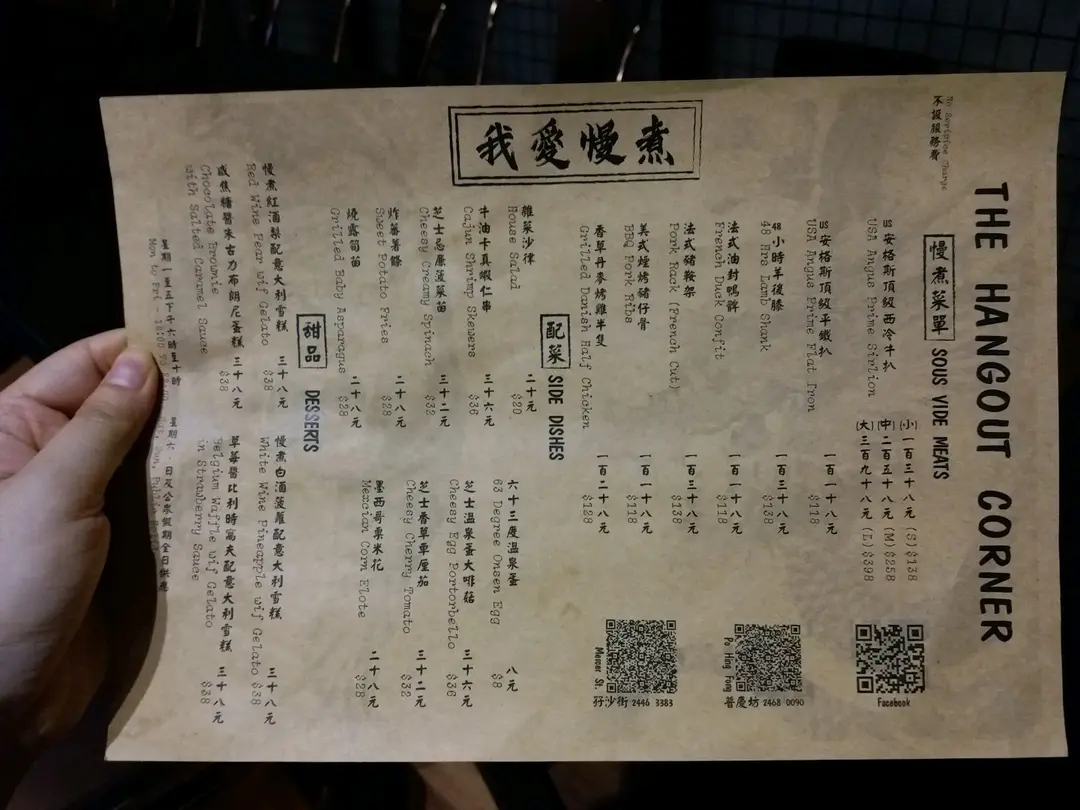 THE HANGOUT CORNER
不設服務費
No Service Charge
我愛慢煮
慢煮菜單 SOUS VIDE MEATS
US 安格斯頂級西冷牛扒
USA Angus Prime Sirlion
(小) 一百三十八元 (S) $138
(中) 二百五十八元 (M) $258
(大) 三百九十八元 (L) $398
US 安格斯頂級平鐵扒 一百一十八元
USA Angus Prime Flat Iron $118
48小時羊後膝 一百三十八元
48 Hrs Lamb Shank $138
法式油封鴨髀 一百一十八元
French Duck Confit $118
法式豬鞍架 一百三十八元
Pork Rack (French Cut) $138
美式煙烤豬仔骨 一百一十八元
BBQ Pork Ribs $118
香草丹麥烤雞半隻 一百二十八元
Grilled Danish Half Chicken $128
Facebook
Po Hing Fong
普慶坊 2468 0090
Mercer St.
孖沙街 2446 3383
配菜 SIDE DISHES
雜菜沙律 二十元
House Salad $20
牛油卡真蝦仁串 三十六元
Cajun Shrimp Skewers $36
芝士忌廉菠菜苗 三十二元
Cheesy Creamy Spinach $32
炸蕃薯條 二十八元
Sweet Potato Fries $28
燒露筍苗 二十八元
Grilled Baby Asparagus $28
六十三度溫泉蛋 八元
63 Degree Onsen Egg $8
芝士溫泉蛋大啡菇 三十六元
Cheesy Egg Portorbello $36
芝士香草車厘茄 三十二元
Cheesy Cherry Tomato $32
墨西哥粟米花 二十八元
Mexcian Corn Elote $28
甜品 DESSERTS
慢煮紅酒梨配意大利雪糕 三十八元
Red Wine Pear wif Gelato $38
咸焦糖醬朱古力布朗尼蛋糕 三十八元
Chocolate Brownie $38
with Salted Caramel Sauce
慢煮白酒菠蘿配意大利雪糕 三十八元
White Wine Pineapple wif Gelato $38
草莓醬比利時窩夫配意大利雪糕 三十八元
Belgium Waffle wif Gelato $38
in Strawberry Sauce
星期一至五下午六時至十時 星期六、日及公眾假期全日供應
Mon to Fri - 18:00 Sun, Public